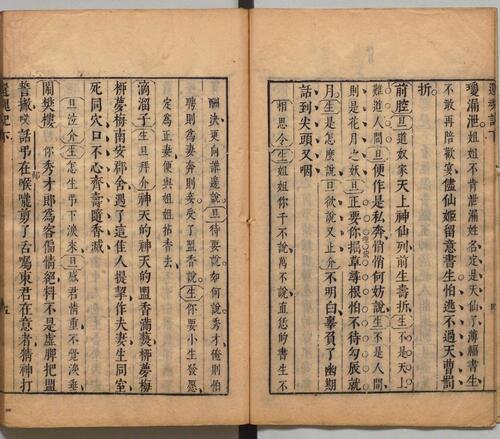 瓊漏泄姐姐不肯泄漏姓名定是天仙了薄福書生
不敢再陪歡宴儘仙姬留意書生怕逃不過天曹罰
折
前腔旦道奴家天上神仙列前生壽折生不是天上
難道人間旦便作是私奔悄悄何妨說生不是人間
則是花月之妖旦正要你掘草尋根怕不待勾辰就
月生是怎麼說旦欲說又止介不明白辜負了幽期
話到尖頭又咽
相思令生姐姐你千不說萬不說直恁的書生不
酬決更向誰邊說旦待要說如何說秀才俺則怕
聘則為妻奔則妾受了盟香說生你要小生發愿
定為正妻便與姐姐拈香去
滴溜子生旦拜介神天的神天的盟香滿爇柳夢梅
柳夢梅南安郡舍遇了這佳人提挈作夫妻生同室
死同穴口不心齊壽隨香滅
旦泣介生怎生弔下淚來旦感君情重不覺淚垂
鬧樊樓 你秀才郎為客偏情絕料不是虛脾把盟
誓撇哎話弔在喉嚨剪了舌囑東君在意者精神打
還魂記下
五